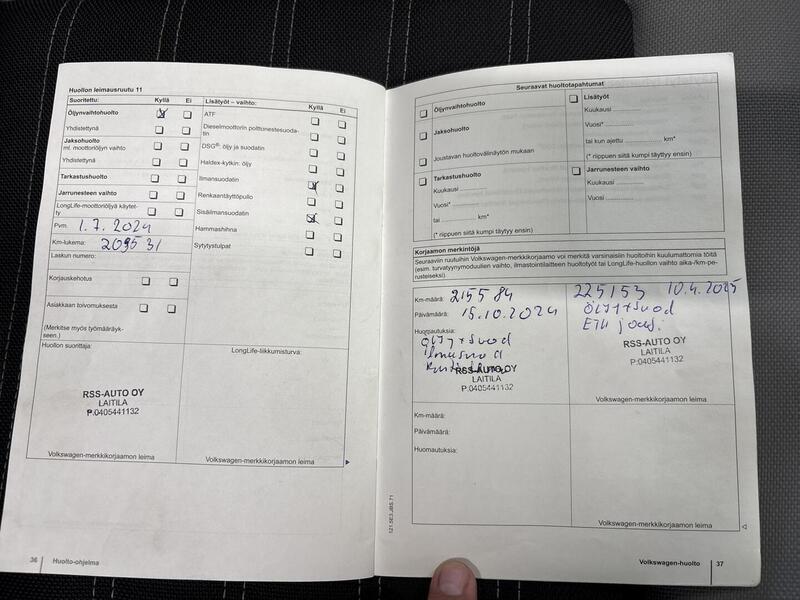 Huollon leimausruutu 11
Suoritettu: Kyllä Ei
Öljynvaihtohuolto
Yhdistettynä
Jaksohuolto
ml. moottoriöljyn vaihto
Yhdistettynä
Tarkastushuolto
Jarrunesteen vaihto
LongLife-moottoriöljyä käytet-
ty
Pvm. 1.7.2024
Km-lukema: 209531
Laskun numero:
Korjauskehotus
Asiakkaan toivomuksesta
(Merkitse myös työmääräyk-
seen.)
Huollon suorittaja:
RSS-AUTO OY
LAITILA
P.0405441132
Volkswagen-merkkikorjaamon leima
Lisätyöt – vaihto: Kyllä Ei
ATF
Dieselmoottorin polttonestesuoda-
tin
DSG®: öljy ja suodatin
Haldex-kytkin: öljy
Ilmansuodatin
Renkaantäyttöpullo
Sisäilmansuodatin
Hammashihna
Sytytystulpat
LongLife-liikkumisturva:
Volkswagen-merkkikorjaamon leima
36 Huolto-ohjelma
Seuraavat huoltotapahtumat
Öljynvaihtohuolto
Jaksohuolto
Joustavan huoltovälinäytön mukaan
Tarkastushuolto
Kuukausi
Vuosi*
tai km*
(* riippuen siitä kumpi täytyy ensin)
Lisätyöt
Kuukausi
Vuosi*
tai kun ajettu km*
(* riippuen siitä kumpi täyttyy ensin)
Jarrunesteen vaihto
Kuukausi
Vuosi
Korjaamon merkintöjä
Seuraaviin ruutuihin Volkswagen-merkkikorjaamo voi merkitä varsinaisiin huoltoihin kuulumattomia töitä
(esim. turvatyynymoduulien vaihto, ilmastointilaitteen huoltotyöt tai LongLife-huollon vaihto aika-/km-pe-
rusteiseksi).
Km-määrä: 215584
Päivämäärä: 15.10.2024
Huomautuksia:
öljy+suod
ilmasuod
RSS-AUTO OY
LAITILA
P.0405441132
225153 10.4.2025
öljy+suod
Etu
RSS-AUTO OY
LAITILA
P.0405441132
Volkswagen-merkkikorjaamon leima
Km-määrä:
Päivämäärä:
Huomautuksia:
Volkswagen-merkkikorjaamon leima
121.5E3.JBS.71
Volkswagen-huolto 37